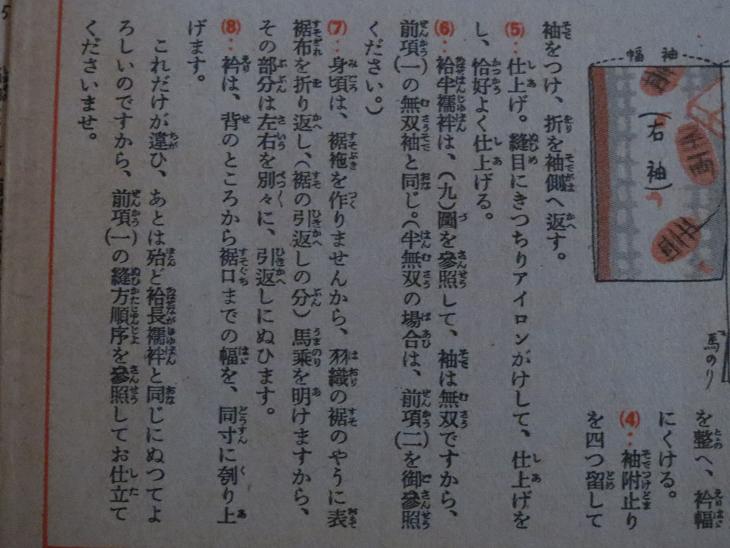 幅袖
(右袖)
馬のり
を整へ、衿幅
にくける。
(4)‥袖附止り
を四つ留して
袖をつけ、折を袖側へ返す。
(5)‥仕上げ。縫目にきつちりアイロンがけして、仕上げを
し、恰好よく仕上げる。
(6)‥袷半襦袢は、(九)圖を參照して、袖は無双ですから、
前項(一)の無双袖と同じ。(半無双の場合は、前項(二)を御參照
ください。)
(7)‥身頃は、裾袘を作りませんから、羽織の裾のやうに表
裾布を折り返し、(裾の引返しの分)馬乗を明けますから、
その部分は左右を別々に、引返しにぬひます。
(8)‥衿は、背のところから裾口までの幅を、同寸に刳り上
げます。
これだけが違ひ、あとは殆ど袷長襦袢と同じにぬつてよ
ろしいのですから、前項(一)の縫方順序を參照してお仕立て
くださいませ。